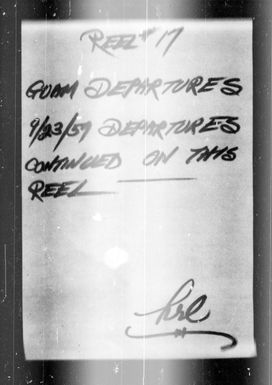 REEL # 17
GUAM DEPARTURES
9/23/57 DEPARTURES
CONTINUED ON THIS
REEL